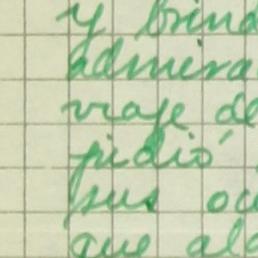 y brind
admira
viaje de
pidió
sus oc
que al